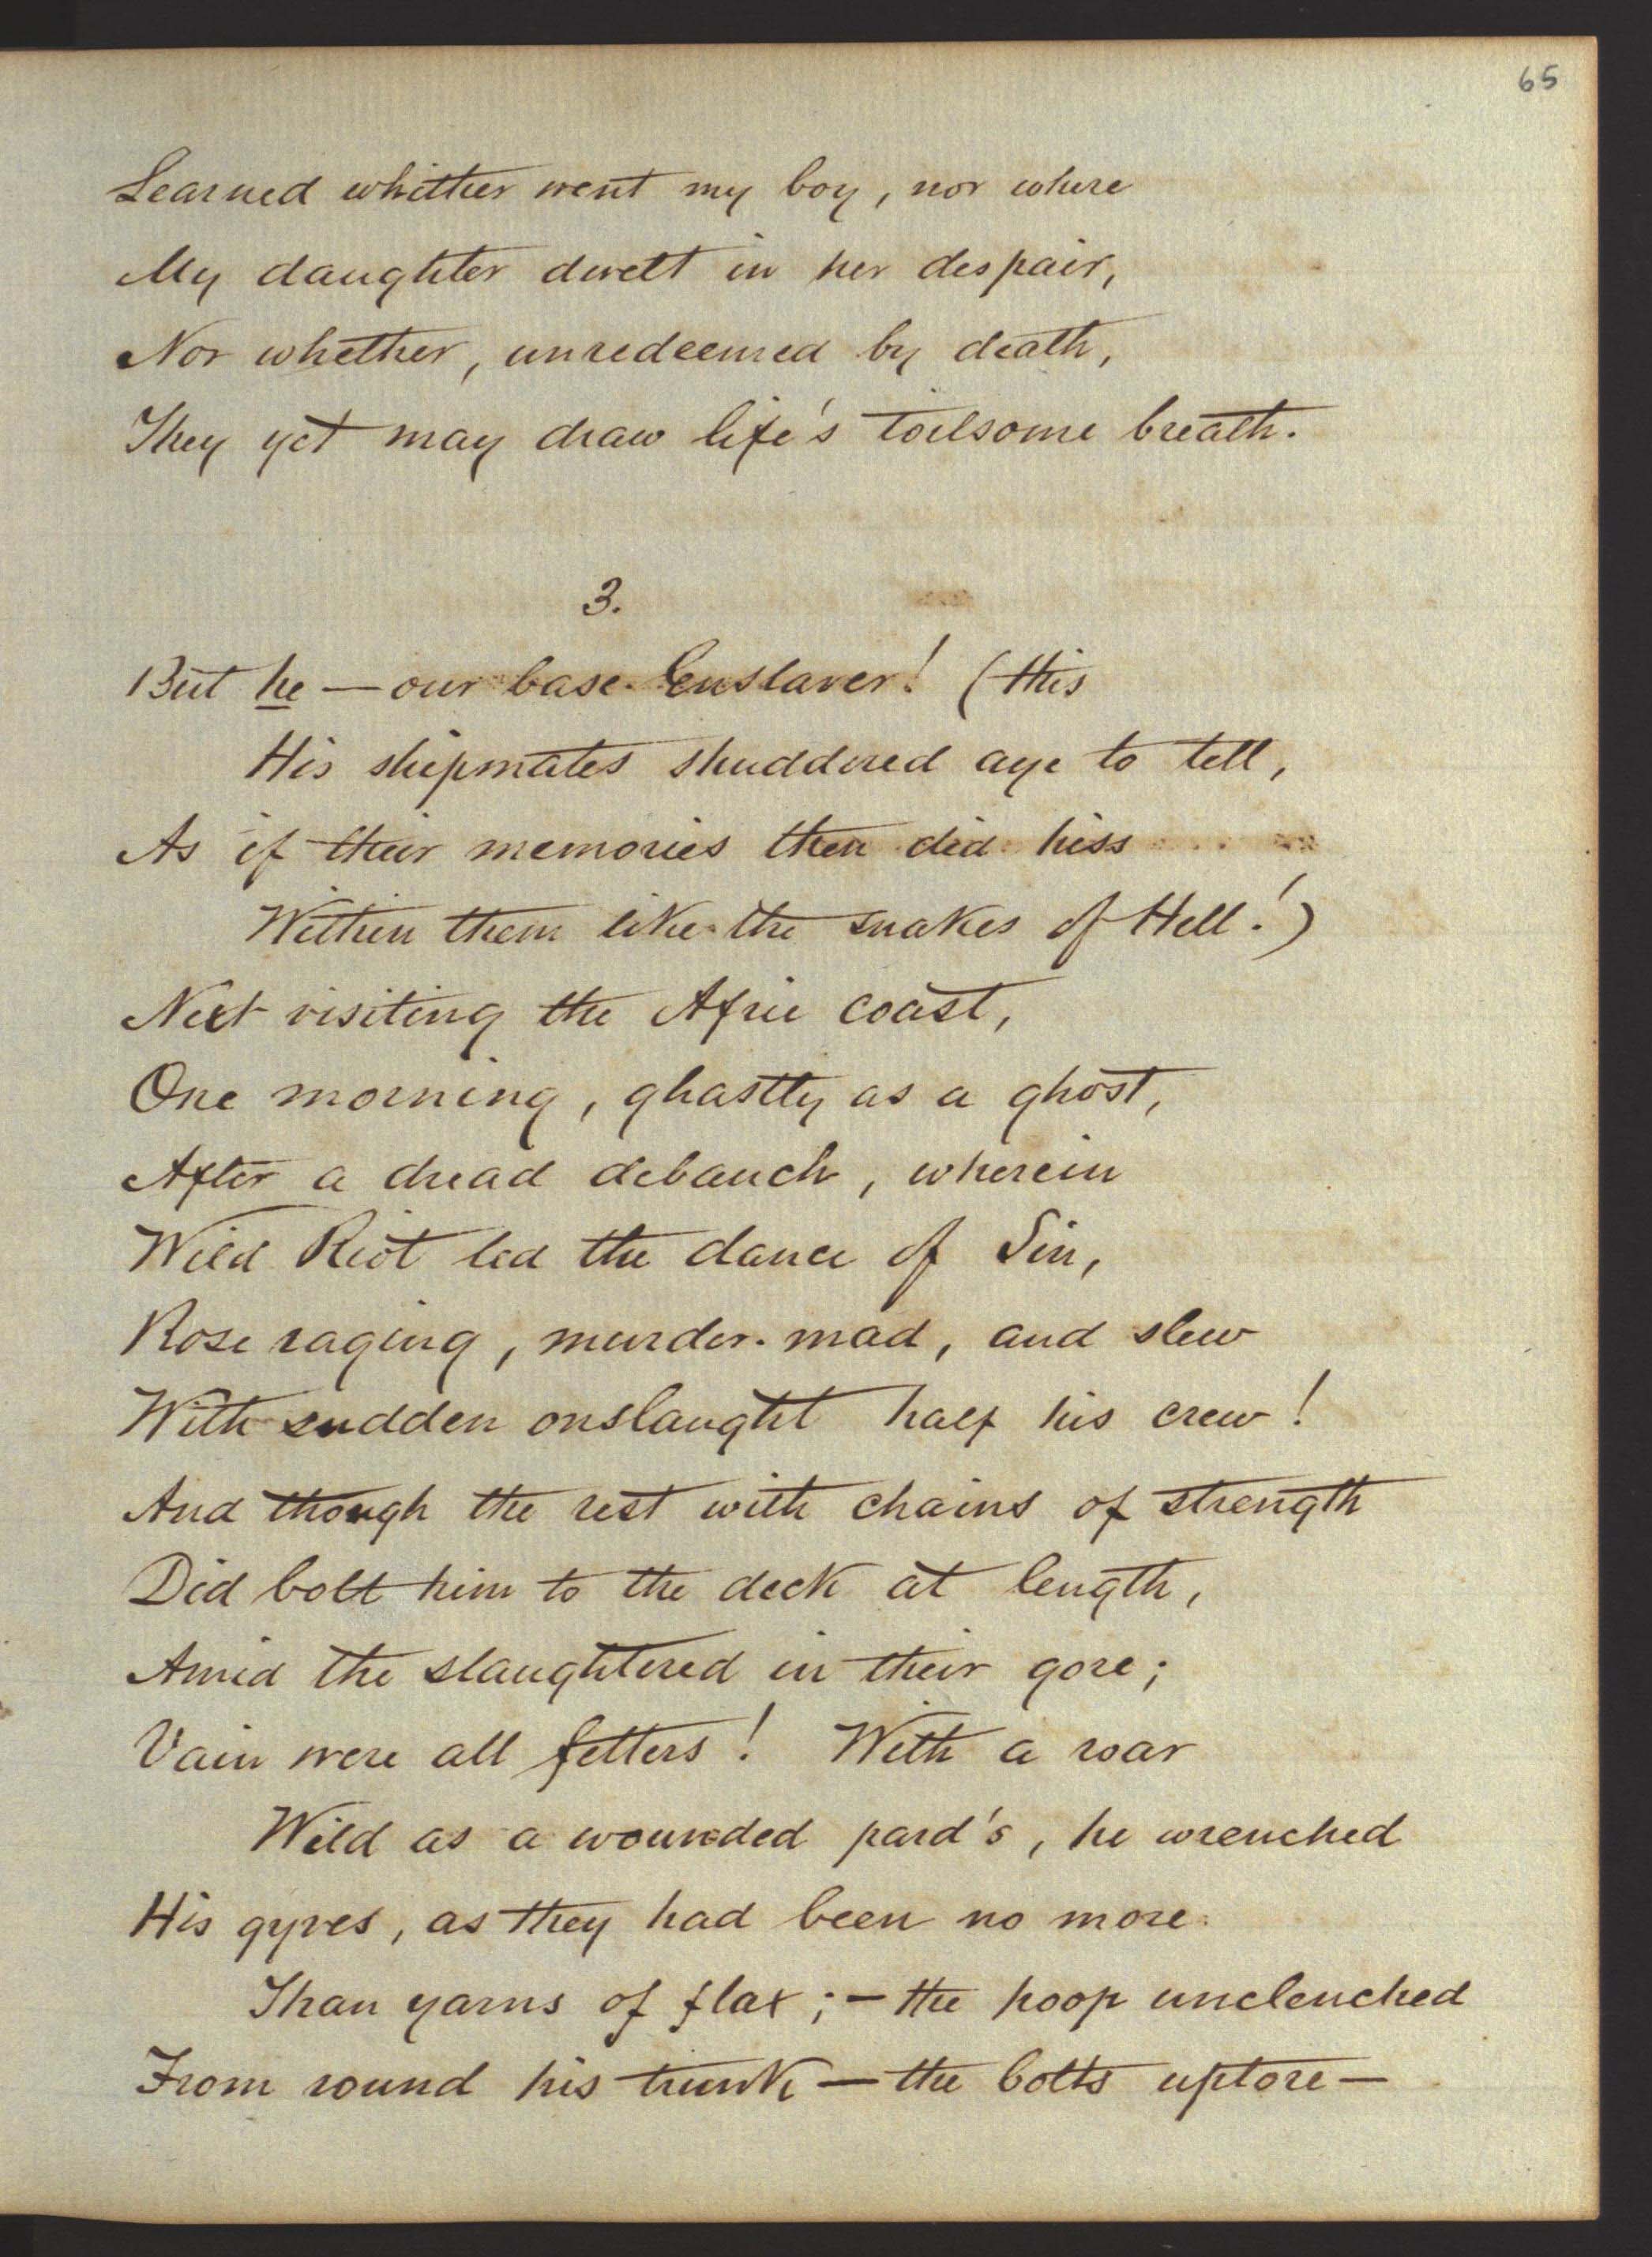 65
Learned whither went my boy, nor where
My daughter dwelt in her despair,
Nor whether, unredeemed by death,
They yet may draw life's toilsome breath.
3.
But he — our base Enslaver! (this
His shipmates shuddered aye to tell,
As if their memories then did hiss
Within them like the snakes of Hell!)
Next visiting the Afric coast,
One morning, ghastly as a ghost,
After a dread debauch, wherein
Wild Riot led the dance of Sin,
Rose raging, murder-mad, and slew
With sudden onslaught half his crew!
And though the rest with chains of strength
Did bolt him to the deck at length,
Amid the slaughtered in their gore;
Vain were all fetters! With a roar
Wild as a wounded pard's, he wrenched
His gyves, as they had been no more
Than yarns of flax; — the hoop unclenched
From round his trunk — the bolts uptore —